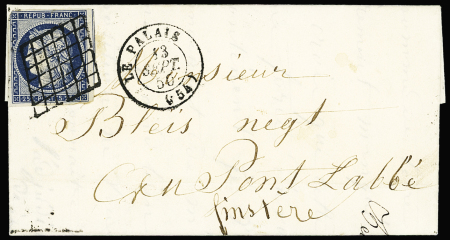 REPUB. FRANC.
LE PALAIS
13
SEPT.
50
(54)
Monsieur
Bleis negt
au Pont Labbé
finstère